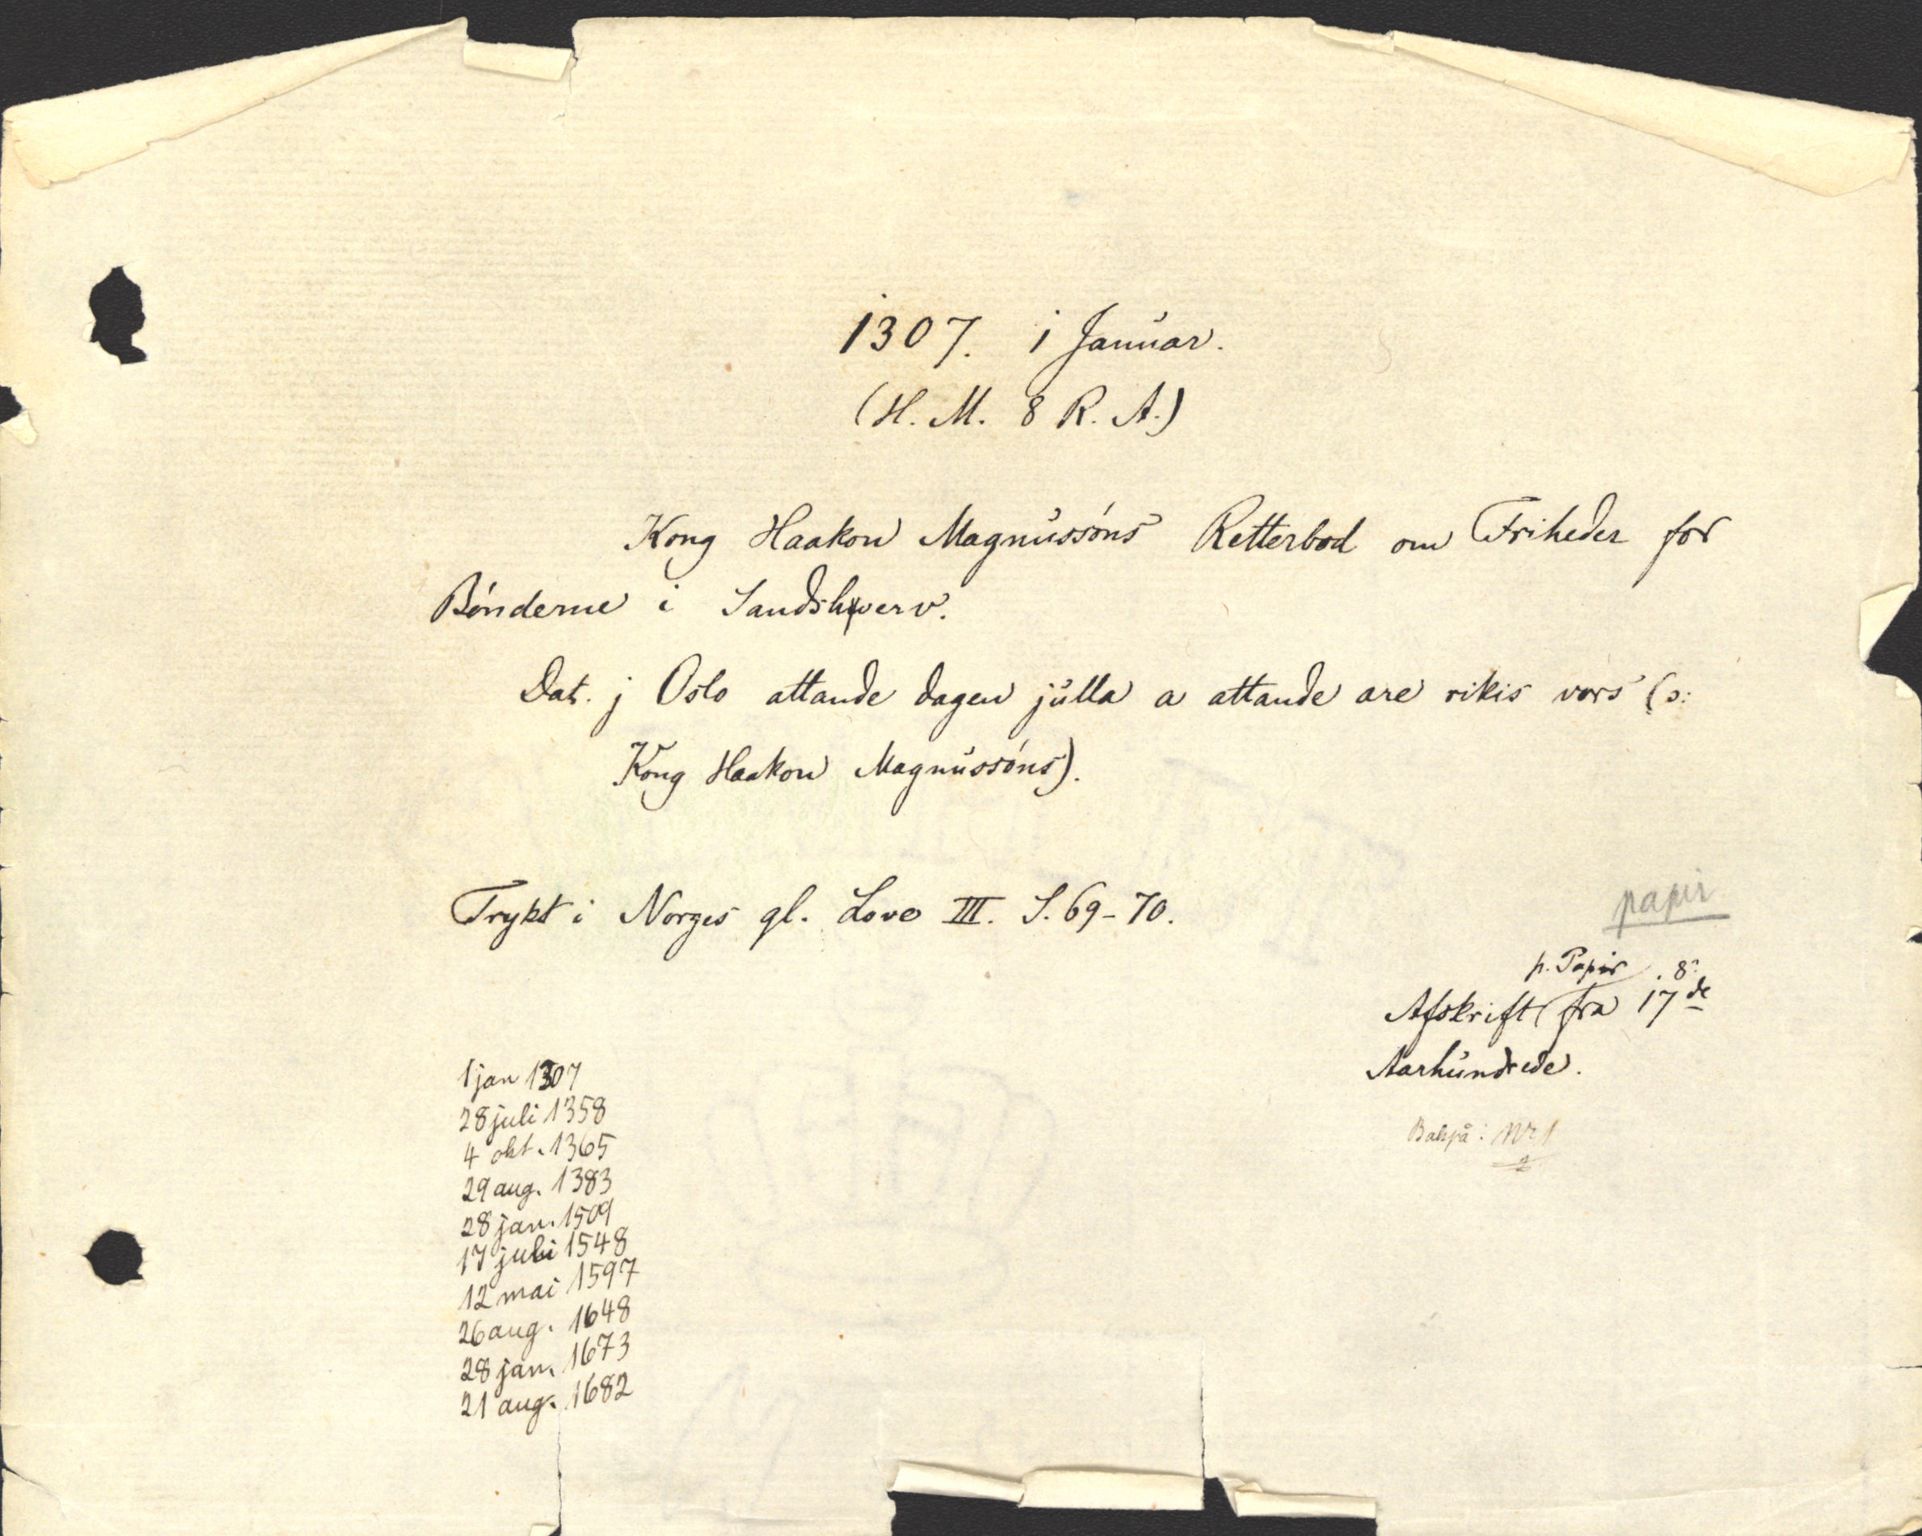 1307. 1 Januar.
(H. M. 8 R. A.)
Kong Haakon Magnussøns Retterbod om Friheder for
Bønderne i Sandshverv.
Dat. j Oslo attande dagen julla a attande are rikis vors (ɔ:
Kong Haakon Magnussøns).
Trykt i Norges gl. Love III. S. 69-70.
papir
p. Papir . 8º
Afskrift fra 17de
Aarhundrede.
Bakpå: Nr 1
1 jan 1307
28 juli 1358
4 okt. 1365
29 aug. 1383
28 jan. 1509
17 juli 1548
12 mai 1597
26 aug. 1648
28 jan. 1673
21 aug. 1682